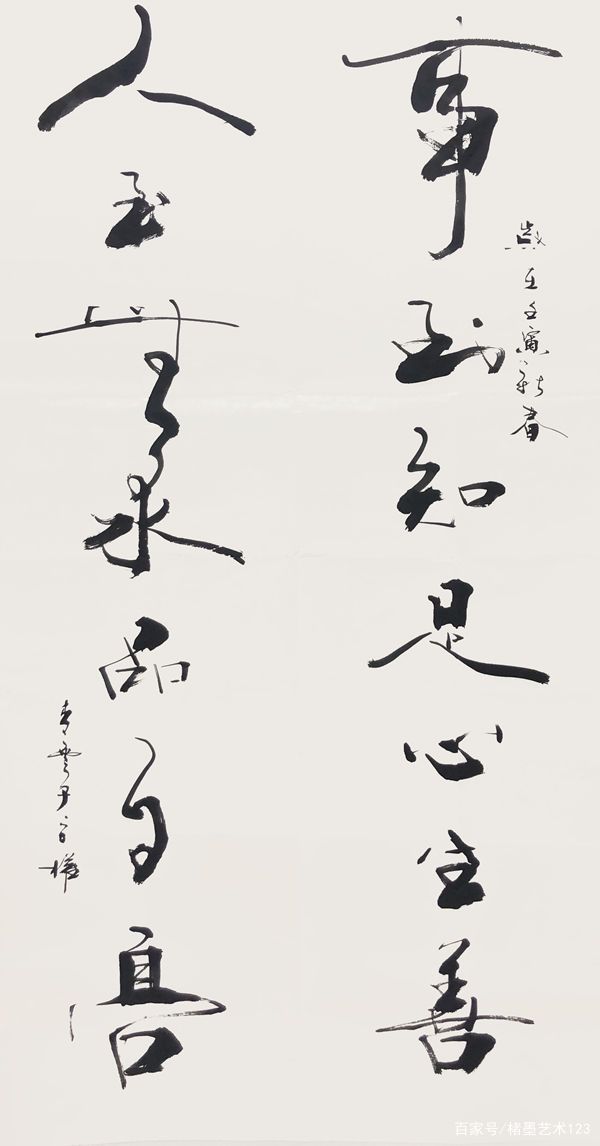 歲在壬寅新春
事到知足心生善
人至無求品自高
百家号/楮墨艺术123